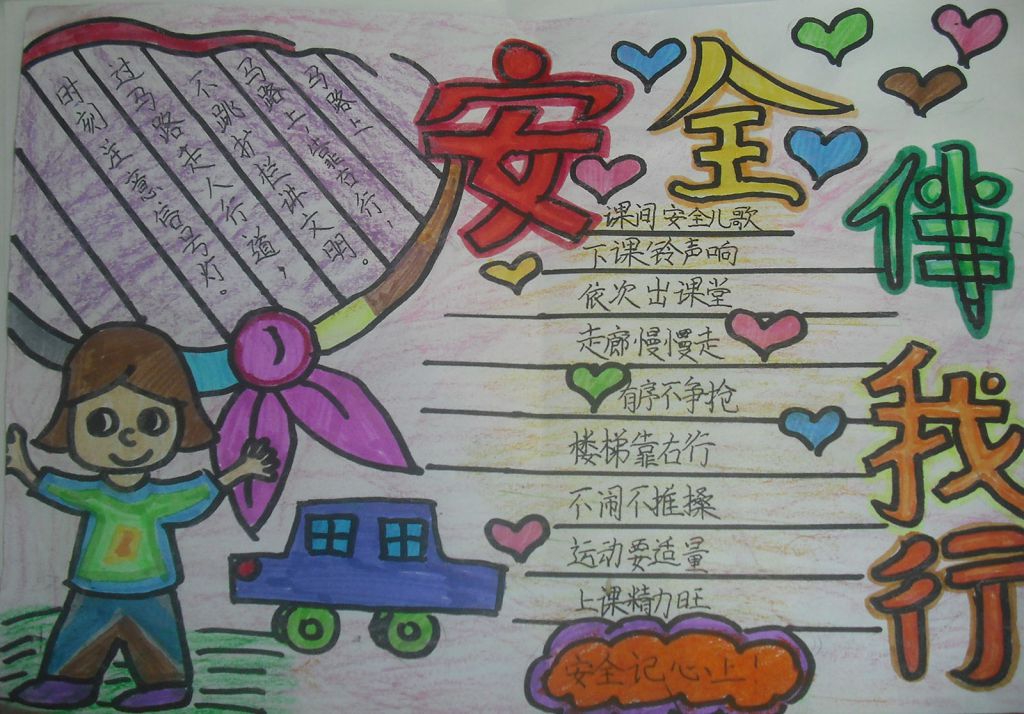 安全伴我行
马路上
马路上,靠右行。
不跳扩栏讲文明。
过马路走人行道，
时刻注意信号灯。
课间安全儿歌
下课铃声响
依次出课堂
走廊慢慢走
有序不争抢
楼梯靠右行
不闹不推搡
运动要适量
上课精力旺
安全记心上！